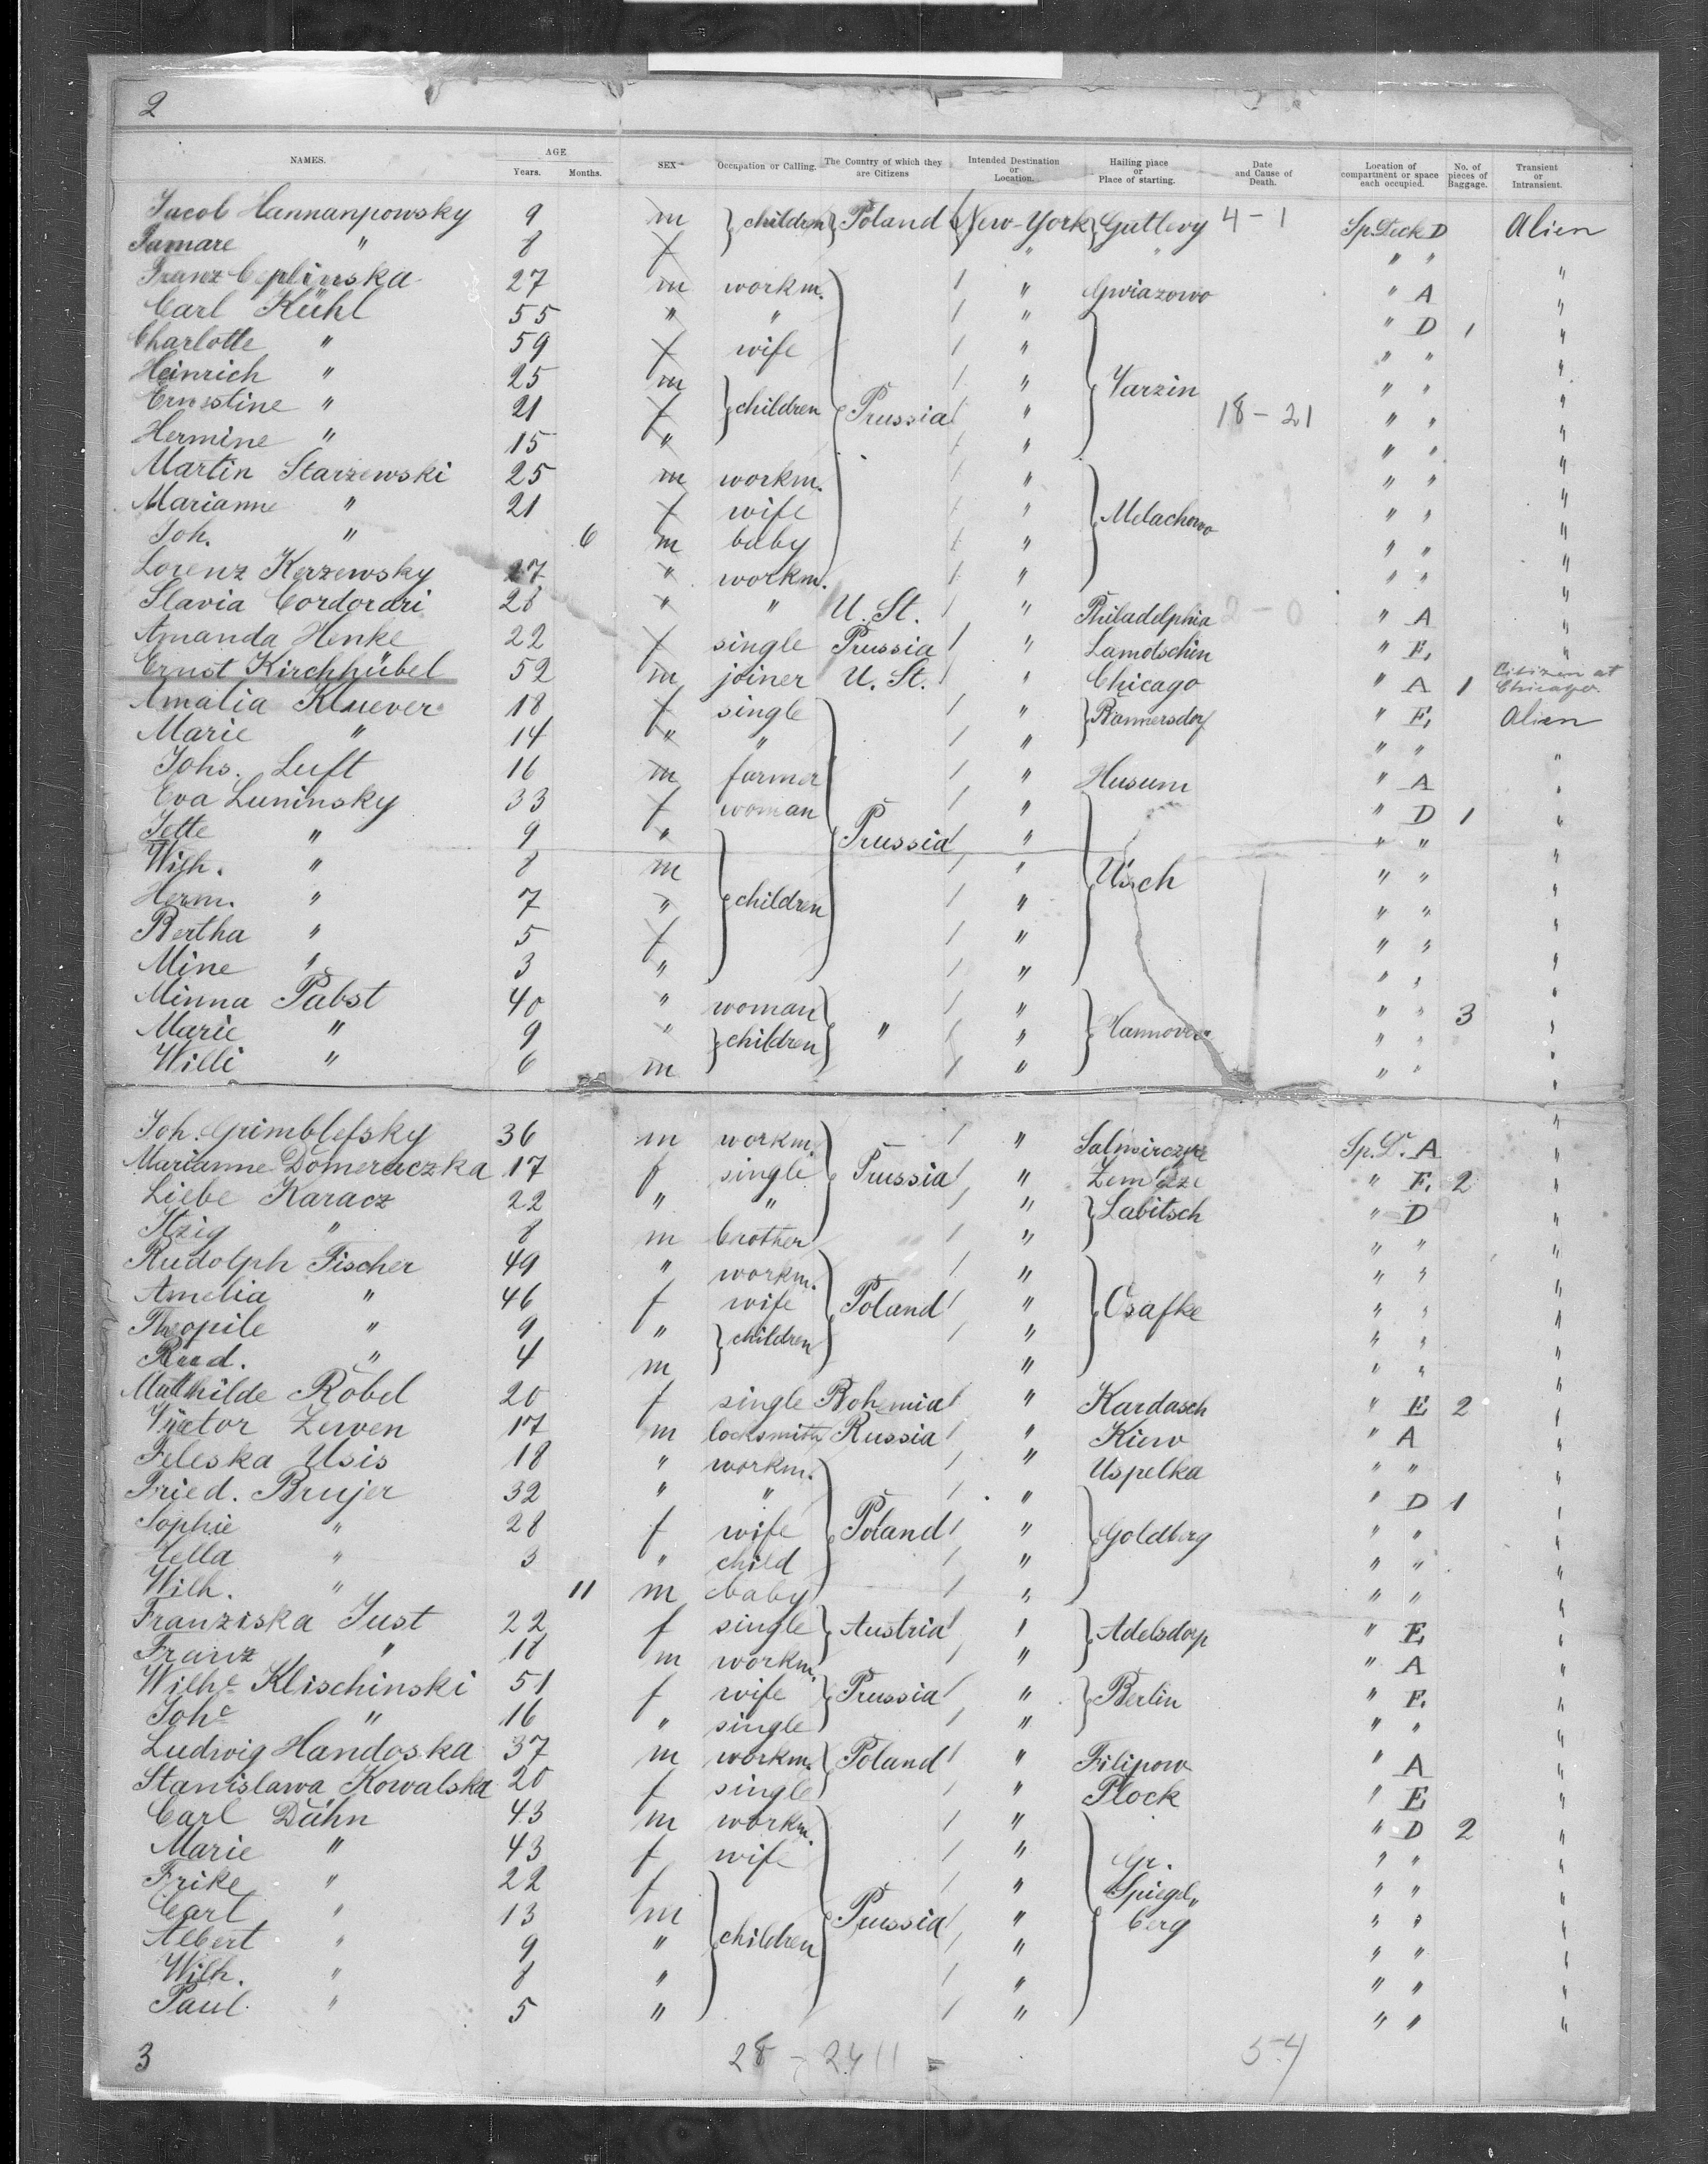 2
NAMES. AGE Years. Months. SEX Occupation or Calling. The Country of which they are Citizens Intended Destination or Location. Hailing place or Place of starting. Date and Cause of Death. Location of compartment or space each occupied. No. of pieces of Baggage. Transient or Intransient.
Jacob Hannanpowsky 9 m } children } Poland New-York } Guttevy 4-1 Sp. Deck D Alien
Tamare " 8 f " " " " "
Franz Ceplinska 27 m workm. / " Gwiazowo " A "
Carl Kühl 55 " " / " " D 1 "
Charlotte " 59 f wife / " " " "
Heinrich " 25 m / " } Varzin " " "
Ernestine " 21 f } children { Prussia / " 18-21 " " "
Hermine " 15 " / " " " "
Martin Starzewski 25 m workm. / " " " "
Marianne " 21 f wife / " } Melachowo " " "
Joh. " 6 m baby / " " " "
Lorenz Kerzewsky 27 " workm. / " " " "
Slavia Cordorari 28 " " U. St. / " Philadelphia 2-0 " A "
Amanda Henke 22 f single Prussia / " Lamotschin " E. "
Ernst Kirchhübel 52 m joiner U. St. / " Chicago " A 1 Citizen at Chicago.
Amalia Kluever 18 f single / " } Rammersdorf " E, Alien
Marie " 14 " " / " " " "
Johs. Luft 16 m farmer / " Husum " A "
Eva Luninsky 33 f woman / " " D 1 "
Jette " 9 " { Prussia / " " " "
Wilh. " 8 m / " } Usch " " "
Herm. " 7 " } children / " " " "
Bertha " 5 f / " " " "
Mine " 3 " / " " " "
Minna Pabst 40 " woman / " " " 3 "
Marie " 9 " } children } " / " } Hannover " " "
Willi " 6 m / " " " "
Joh. Grimblefsky 36 m workm. / " Sp. Dr. A "
Marianne Domeraczka 17 f single } Prussia / " " E. 2 "
Liebe Karacz 22 " " / " } Labitsch " D "
Itzig " 8 m brother / " " " "
Rudolph Fischer 49 " workm. / " " " "
Amelia " 46 f wife } Poland / " } Osafke " " "
Theopile " 9 " } children / " " " "
Rud. " 4 m " " " "
Mathilde Röbel 20 f single Bohemia / " Kardasch " E 2 "
Victor Zewen 17 m locksmith Russia / " Kiew " A "
Feleska Usis 18 " workm. / " Uspelka " " "
Fried. Brujer 32 " " / " " D 1 "
Sophie " 28 f wife } Poland / " } Goldberg " " "
Hella " 3 " child / " " " "
Wilh. " 11 m baby / " " " "
Franziska Just 22 f single } Austria / " } Adelsdorf " E "
Franz " 18 m workm. / " " A "
Wilhe Klischinski 51 f wife } Prussia / " } Berlin " E. "
Johe " 16 " single / " " " "
Ludwig Handoska 37 m workm. } Poland / " Filipow " A "
Stanislawa Kowalska 20 f single / " Plock " E "
Carl Dähn 43 m workm. / " " D 2 "
Marie " 43 f wife / " Gr. " " "
Frike " 22 f / " Spiegel„ " " "
Carl " 13 m { Prussia / " berg " " "
Albert " 9 " } children / " " " "
Wilh. " 8 " / " " " "
Paul. " 5 " / " " " "
3 28 - 2411 = 5-4